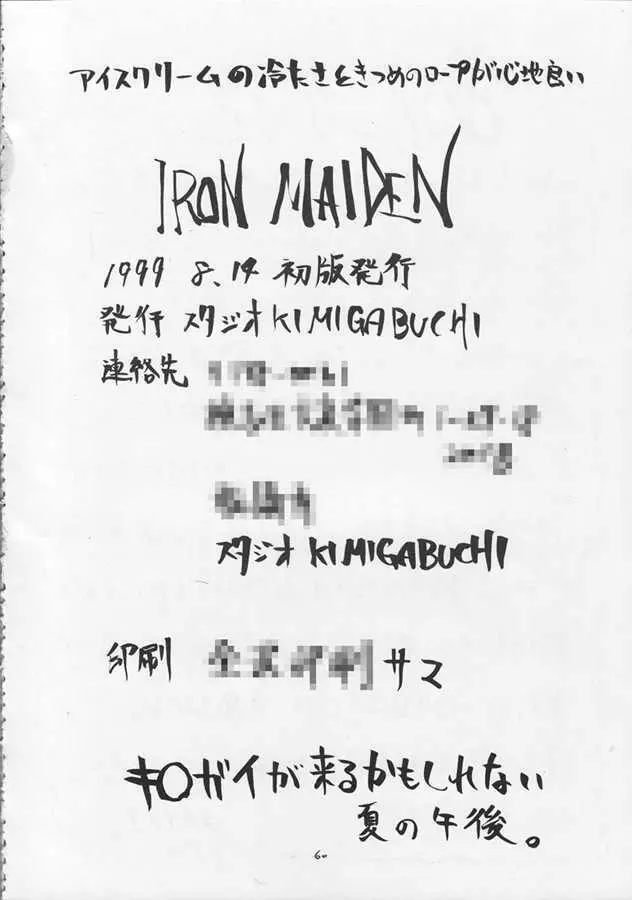 アイスクリームの冷たさときつめのロープが心地良い
IRON MAIDEN
1999 8.14 初版発行
発行 スタジオKIMIGABUCHI
連絡先
スタジオKIMIGABUCHI
印刷 サマ
キ○ガイが来るかもしれない
夏の午後。
60